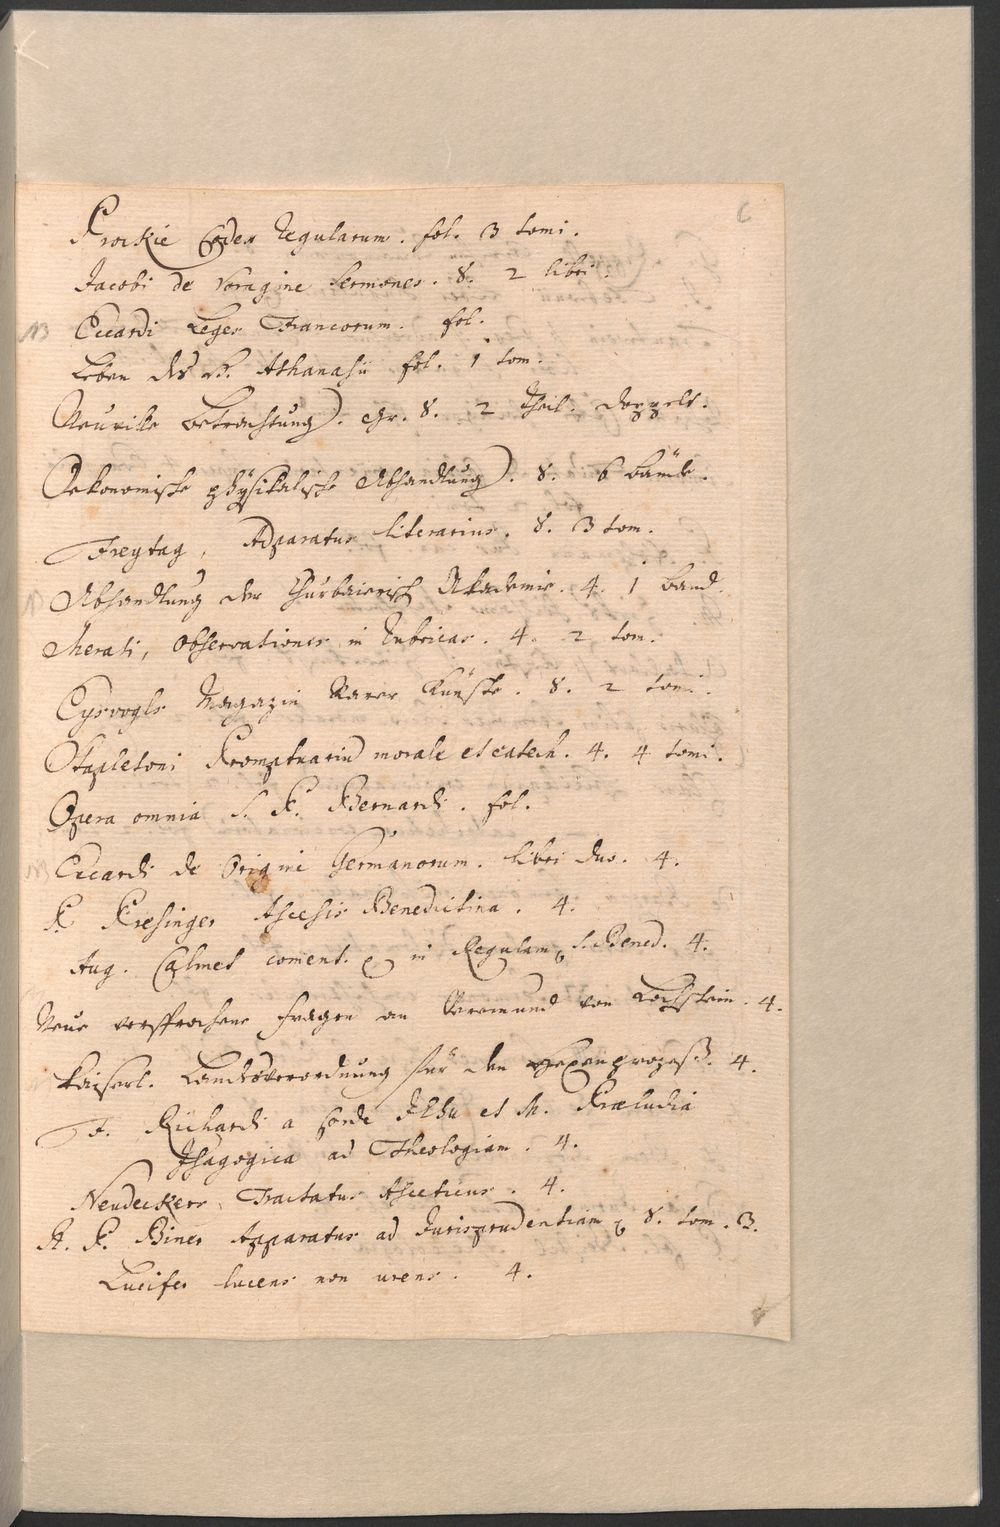 6
Prockie Codex Regularum. fol. 3 tomi.
Jacobi de Voragine Sermones. 8. 2 libri.
NB Eccardi Leges Francorum. fol.
Leben des H. Athanasii fol. 1 tom.
Neuville Betrachtung. gr. 8. 2 Theil. doppelt.
Oekonomische physikalische Abhandlung. 8. 6 Bände.
Freytag, Adparatus literarius. 8. 3 tom.
Abhandlung der Churbaierisch Akademie. 4. 1 Band.
Merati, observationes in Rubricas. 4. 2 tom.
Eysvogls Magazin Rarer Künste. 8. 2 tomi.
Stapletoni Promptuariu morale et catech. 4. 4 tomi.
Opera omnia S. P. Bernardi. fol.
NB Eccardi de Origine Germanorum. libri duo. 4.
P. Kresinger Ascesis Benedictina. 4.
Aug. Calmet coment. in Regulam S. Bened. 4.
Neue versprochene Fragen an Veremund von Lochstein. 4.
Kaiserl. Landsverordnung für den Hexenprozess. 4.
F. Richardi a corde Jesu et M. Præludia
Isagogica ad Theologiam. 4.
Neudeckers Tractatus Asceticus. 4.
R. P. Biner Apparatus ad Jurisprudentiam 8. tom. 3.
Lucifer lucens non urens. 4.